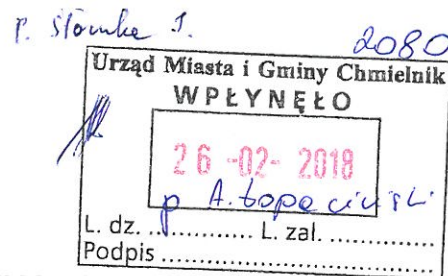 P. Słomke J. 2080
Urząd Miasta i Gminy Chmielnik
WPŁYNĘŁO
26 -02- 2018
p A. Łopaciński
L. dz. .............. L. zał. ..............
Podpis ....................................